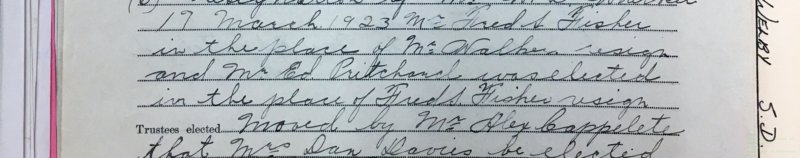 (2) Resignation of Mr. W. L. Walker
17 March 1923 Mr Fred S Fisher
in the place of Mr Walker resign
and Mr Ed Pritchard was elected
in the place of Fred S. Fisher resign
Trustees elected Moved by Mr Alex Cappelete
that Mrs Dan Davies be elected
WERBY S.D.